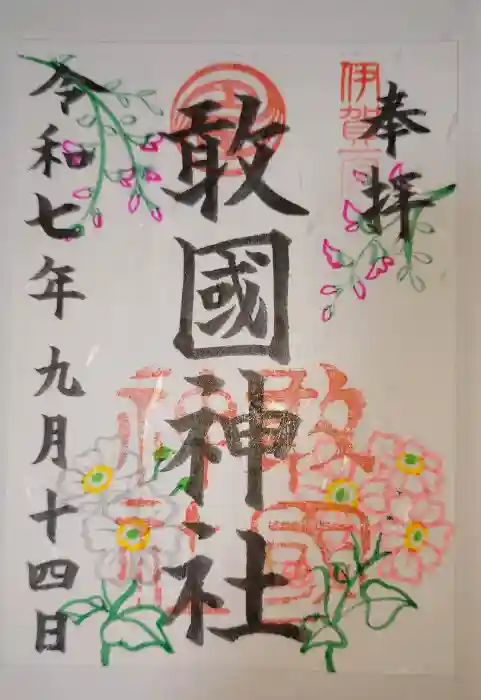 奉拝
伊賀一宮
敢國神社
敢國神社
令和七年九月十四日